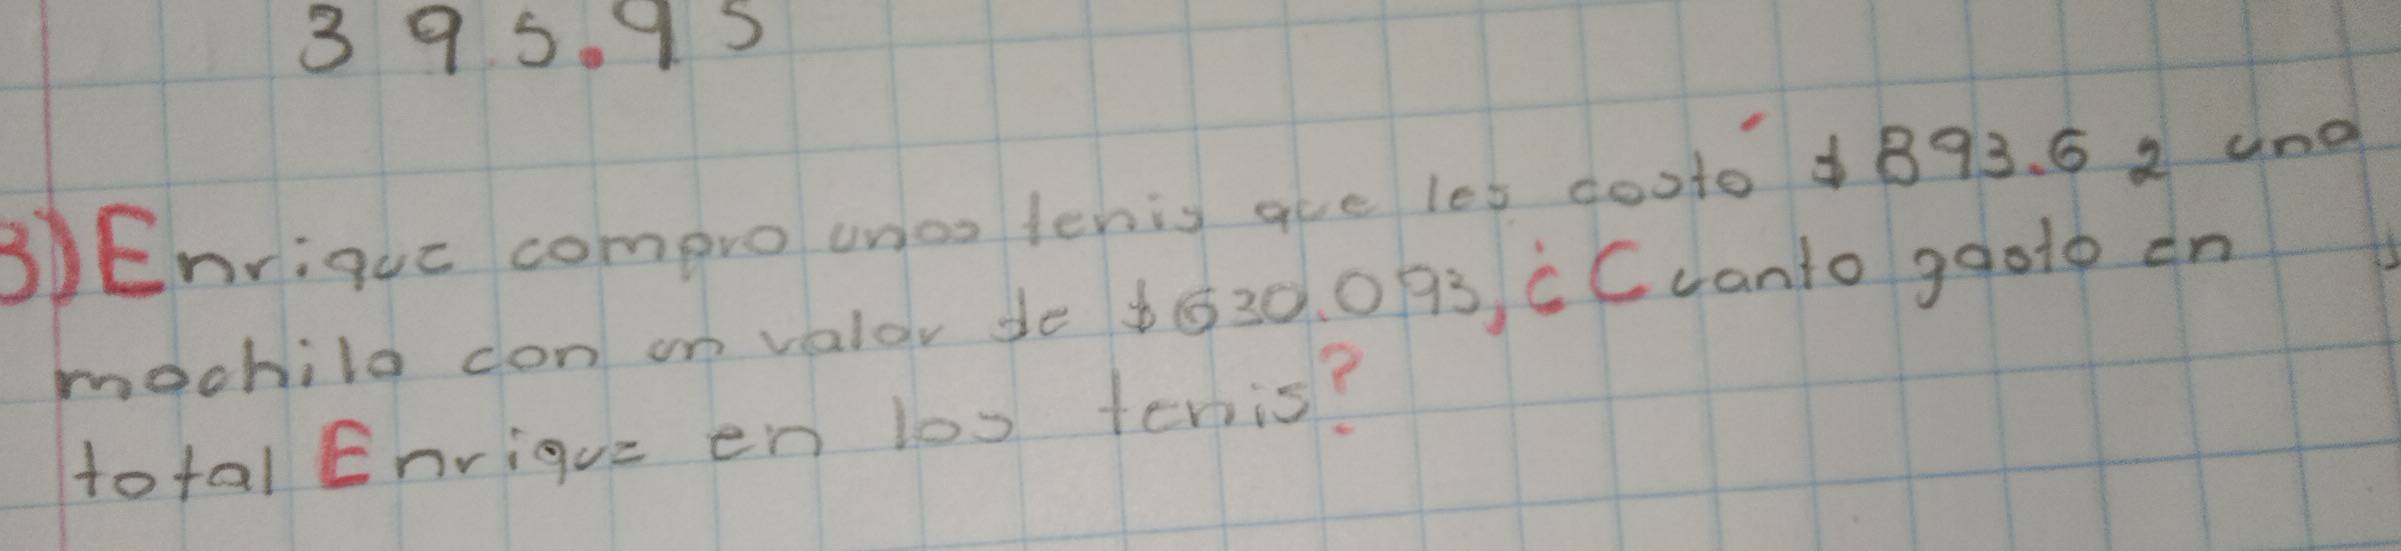 395.95
3) Enrique compro unos tenis que les costó $893.62 una
mochila con un valor de $630.093, ¿Cuanto gasto en
total Enrique en los tenis?